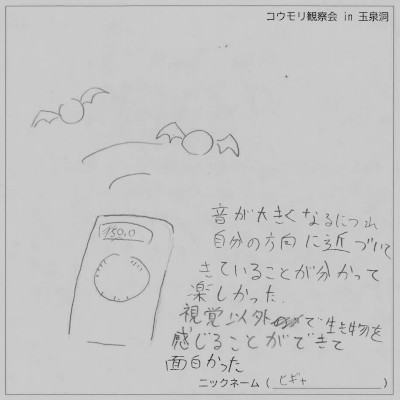 コウモリ観察会 in 玉泉洞
150.0
音が大きくなるにつれ
自分の方向に近づいて
きていることが分かって
楽しかった.
視覚以外で生き物を
感じることができて
面白かった
ニックネーム（ヒギャ）